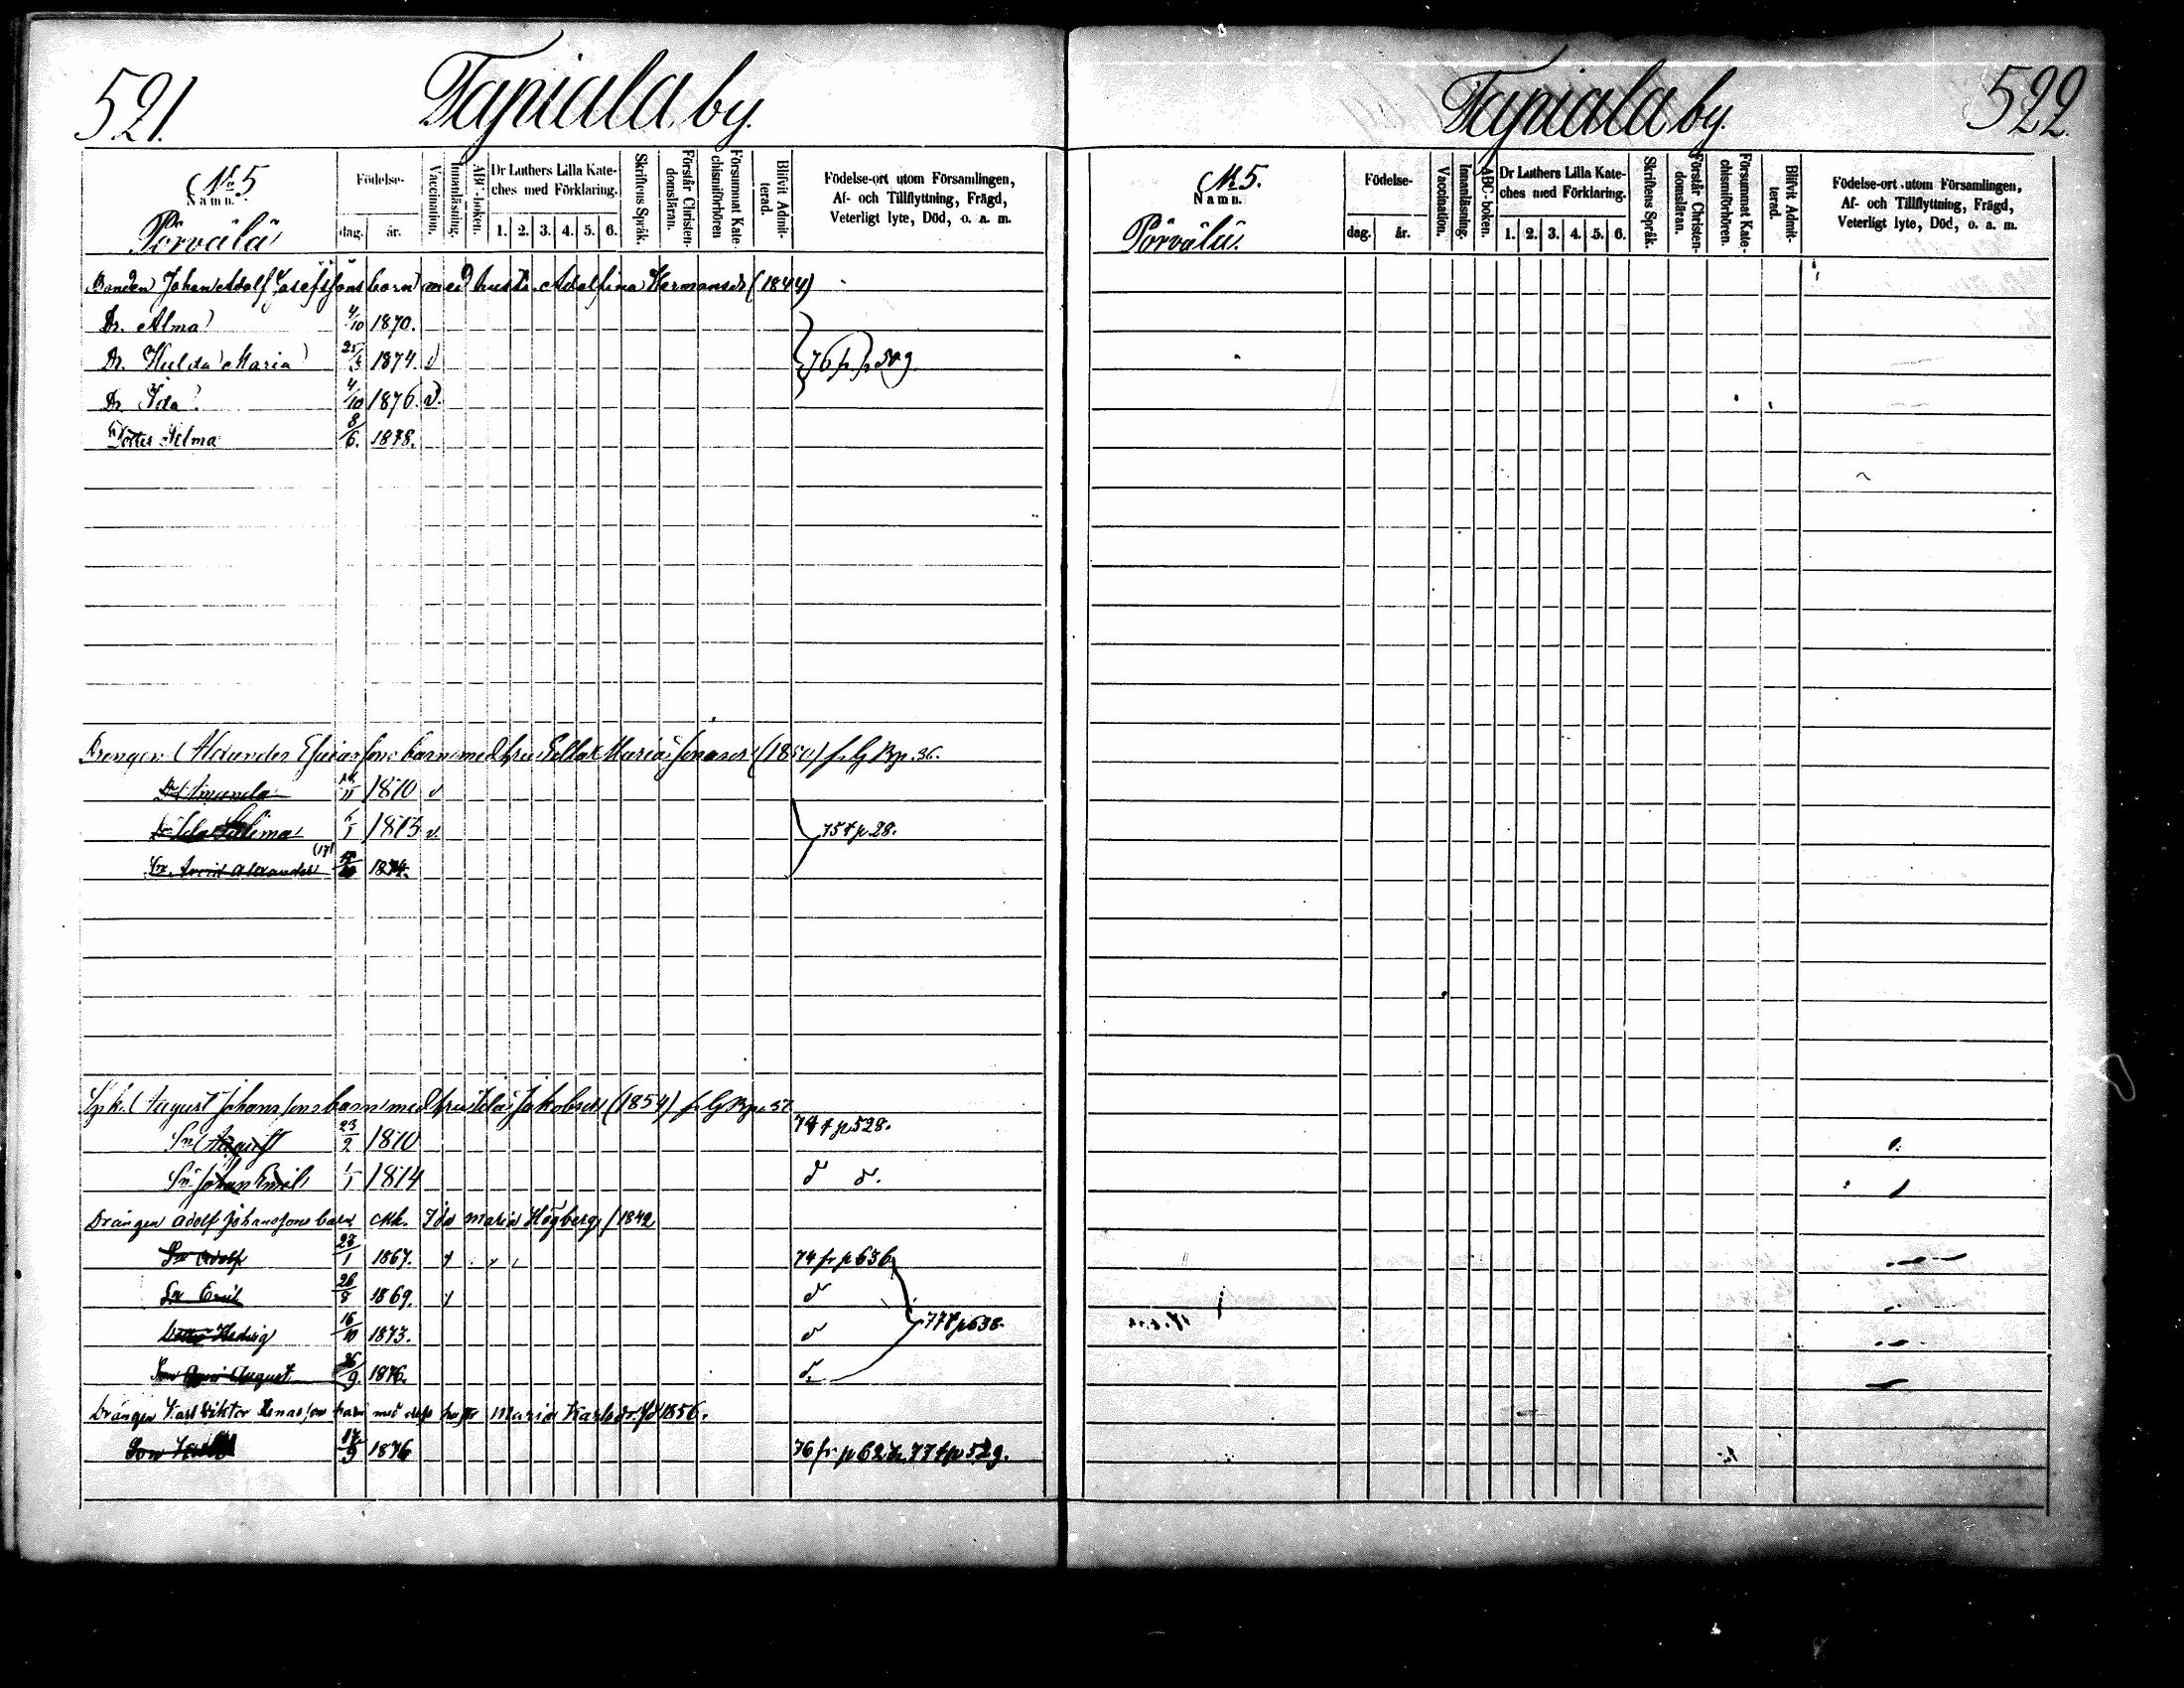 521.
Tapiala by.
No 5
Namn.
Födelse-
dag.
år.
Vaccination.
Innanläsning.
ABC-boken.
Dr Luthers Lilla Kate-
ches med Förklaring.
1. 2. 3. 4. 5. 6.
Skriftens Språk.
Förstår Christen-
domsläran.
Försummat Kate-
chismiförhören
Blifvit Admit-
terad.
Födelse-ort utom Församlingen,
Af- och Tillflyttning, Frägd,
Veterligt lyte, Död, o. a. m.
Pörvälä
Bonden Johan Adolf Josefssons barn med hust. Adolfina Hermansdr (1844)
Dr. Alma 4/10 1870.
Dr. Hulda Maria 25/3 1874. v
76 fr p 509
Dr Ida 4/10 1876. v.
Dotter Selma 8/6. 1878.
Drengen Alexander Esaiassons barn med hru Maria Jonasdr (1850) fr G Bp. 36.
Dr Amanda 11 1870 v
Dr Ida Selima 6/1 1873 v.
75 t p 28.
Sn. Arvid Alexander 1874.
Spk. August Johanssons barn med hru Ida Jakobsdr (1854) fr G Bp. 37
Sn August 23/2 1870
74 t p 528.
Sn Johan Emil 1/1 1874 d d.
Drängen Adolf Johanssons barn Mh. Ida Maria Högberg f 1842
Sn Adolf 23/1 1867.
74 fr p 636
Sn Emil 26/8 1869. d
Dotter Hedvig 16/10 1873. d
77 t p 638.
Son August 26/9. 1876. d.
Drängen Karl Viktor Jonassons barn med dess hustr Maria Karlsdr. fd 1856.
Son 17/9 1876
76 fr p 627. 77 t p 529.
522.
Tapiala by.
No 5.
Namn.
Födelse-
dag.
år.
Vaccination.
Innanläsning.
ABC-boken.
Dr Luthers Lilla Kate-
ches med Förklaring.
1. 2. 3. 4. 5. 6.
Skriftens Språk.
Förstår Christen-
domsläran.
Försummat Kate-
chismiförhören.
Blifvit Admit-
terad.
Födelse-ort utom Församlingen,
Af- och Tillflyttning, Frägd,
Veterligt lyte, Död, o. a. m.
Pörvälä.